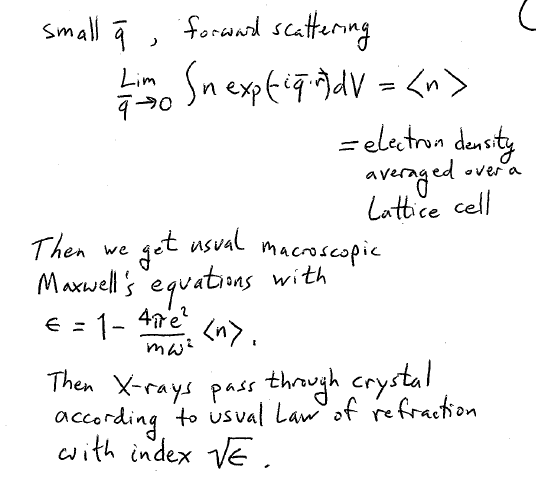 small q̄ , forward scattering
Lim q̄→0 ∫n exp(-iq̄·r̄)dV = <n>
= electron density
averaged over a
Lattice cell
Then we get usual macroscopic
Maxwell's equations with
ϵ = 1- 4πe²/mω² <n>.
Then X-rays pass through crystal
according to usual Law of refraction
with index √ϵ .